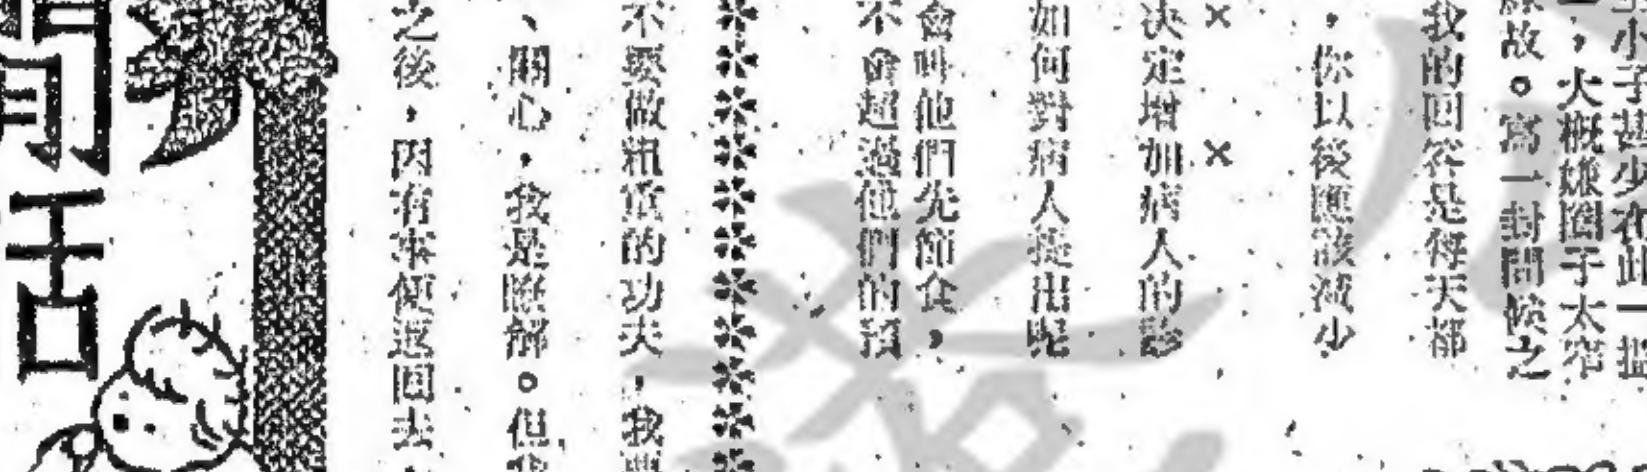 小子甚少在此一
，大概嫌圈子太窄
故。寫一封問候之
我的回答是每天都
，你以後應該減少
× ×
決定增加病人的診
如何對病人提出呢
會叫他們先節食，
不會超過他們的預
不要做粗重的功夫，我
、關心，我是瞭解。但
之後，因有事便返回去
活